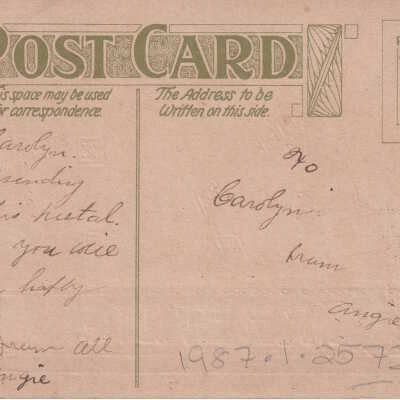 POST CARD
is space may be used
r correspondence.
The Address to be
Written on this side.
Carolyn.
sending
is metal.
you wie
hafby
from all
ngie
to
Carolyn
from
angie
1987.1.257